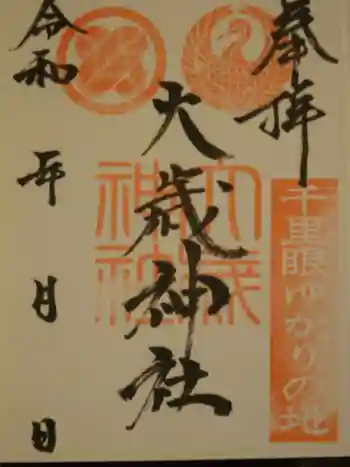 奉拝
千里眼ゆかりの地
大歳神社
大歳神社
令和 年 月 日